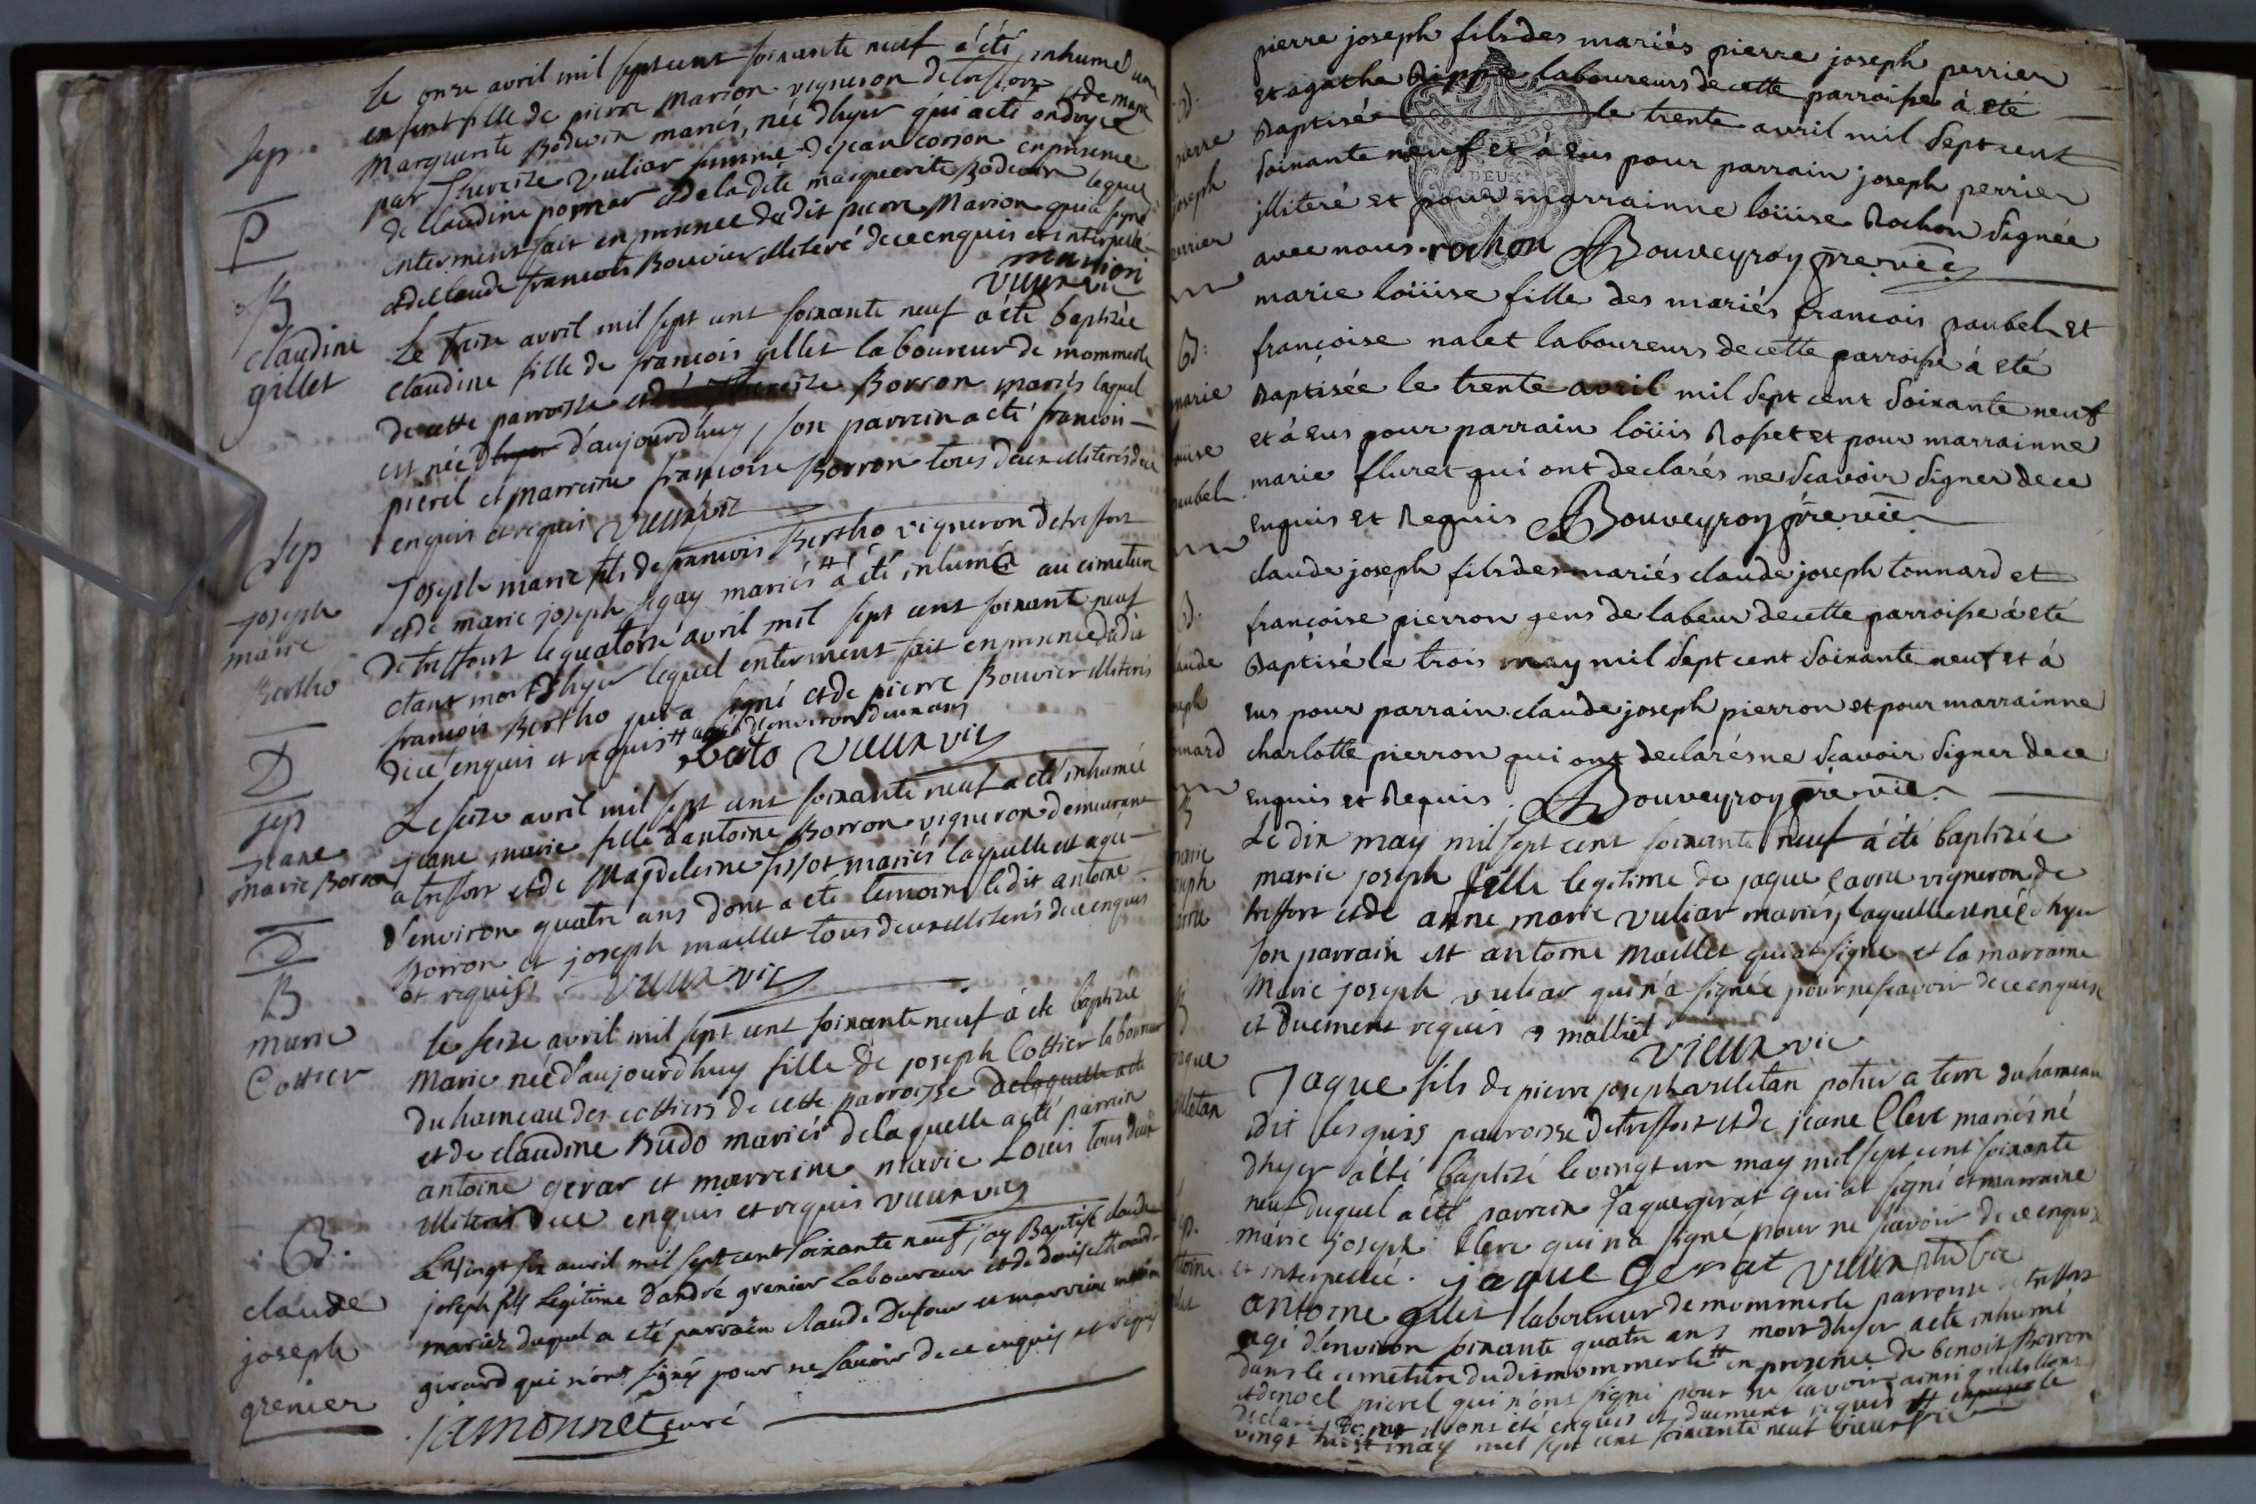 le onze avril mil sept cent soixante neuf a été inhumé un
enfant fille de pierre Marion vigneron de tresfort et de marie
Marguerite Boduin mariés, née d'hyer qui a été ondoyée
par Therese Vuliar femme de jean corron en presence
de claudine et de la dite marguerite Boduin lequel
enterment fait en presence du dit pierre Marion qui a signé
et de claude francois Bouvier illiteré de ce enquis et interpellé
marion
Vieux vic
sep
D
B
claudine
gillet
Le treize avril mil sept cent soixante neuf a été baptizée
claudine fille de francois gillet laboureur de mommerle
de cette parroisse et de Borron mariés laquel
est née d'aujourdhuy, son parrein a été francois
pierel et marreine françoise Borron tous deux illiterés de ce
enquis et requis Vieux vic
sep
joseph
marie
Bertho
D
Joseph marie fils de francois Bertho vigneron de tresfort
et de marie joseph segay mariés # a été inhumé au cimetiere
de tresfort le quatorse avril mil sept cent soixante neuf
etant mort d'hyer lequel enterment fait en presence du dit
francois Bertho qui a signé et de pierre Bouvier illiterés
de ce enquis et requis # agé d'environ deux ans
Berto Vieux vic
sep
jeane
marie Borron
D
Le seize avril mil sept cent soixante neuf a été inhumée
jeane marie fille d'antoine Borron vigneron demeurant
a tresfort et de Magdeleine fissot mariés laquelle est agée
d'environ quatre ans dont a été temoins le dit antoine
Borron et joseph maillet tous deux illiterés de ce enquis
et requis Vieux vic
B
marie
Cottier
le seize avril mil sept cent soixante neuf a été baptizée
Marie née d'aujourdhuy fille de joseph Cottier laboureur
du hameau des cottiers de cette parroisse de laquelle a été
et de claudine Budo mariés de laquelle a été parrein
antoine gerar et marreine marie Louis tous deux
illiterés de ce enquis et requis Vieux vic
B.
claude
joseph
grenier
Le vingt six avril mil sept cent soixante neuf j'ay Baptisé claude
joseph fils Legitime d'andré grenier laboureur et de
mariez duquel a été parrain claude Dufour et marreine
girard qui n'ont signés pour ne savoir de ce enquis et requis
jamonnet curé
pierre joseph fils des mariés pierre joseph perrier
et agathe laboureurs de cette parroisse à eté
Baptisé le trente avril mil sept cent
soixante neuf et á eus pour parrain joseph perrier
jlliteré et pour marrainne loüise Rochon signée
avec nous. rochon Bouveyron pre vic
pierre
joseph
perrier
marie loüise fille des mariés francois paubel et
françoise nalet laboureurs de cette parroisse à eté
Baptisée le trente avril mil sept cent soixante neuf
et á eus pour parrain loüis Rosset et pour marrainne
marie fluret qui ont declarés ne scavoir signer de ce
enquis et Requis Bouveyron pre vic
marie
loüise
paubel
claude joseph fils des mariés claude joseph tonnard et
françoise pierron gens de labeur de cette parroisse à eté
Baptisé le trois may mil sept cent soixante neuf et à
eus pour parrain claude joseph pierron et pour marrainne
charlotte pierron qui ont declarés ne scavoir signer de ce
enquis et Requis. Bouveyron pre vic
Le dix may mil sept cent soixante neuf a été baptizée
marie joseph fille legitime de jaque vigneron de
tresfort et de anne marie Vuliar mariés, laquelle est née d'hyer
son parrain est antoine Maillet qui a signé et la marraine
Marie joseph vuliar qui n'a signée pour ne scavoir de ce enquise
et duement requis malliet
Vieux vic
Jaque fils de pierre joseph potier a terre du hameau
dit les guis parroisse de tresfort et de jeane Clerc mariés né
d'hyer a été baptizé le vingt un may mil sept cent soixante
neuf duquel a été parrein Jaque gerat qui at signé et marraine
marie joseph Clerc qui n'a signé pour ne scavoir de ce enquise
et interpellée. jaque Gerat Vieux vic
antoine gillet laboureur de mommerle parroisse de tresfort
agé d'environ soixante quatre ans mort d'hyer a été inhumé
dans le cimetiere du dit mommerle # en presence de benoit Borron
et de noel pierel qui n'ont signé pour ne scavoir ainsi qu'ils l'ont
declaré de ce ont été enquis et duement requis # le
vingt huit may mil sept cent soixante neuf vieux vic